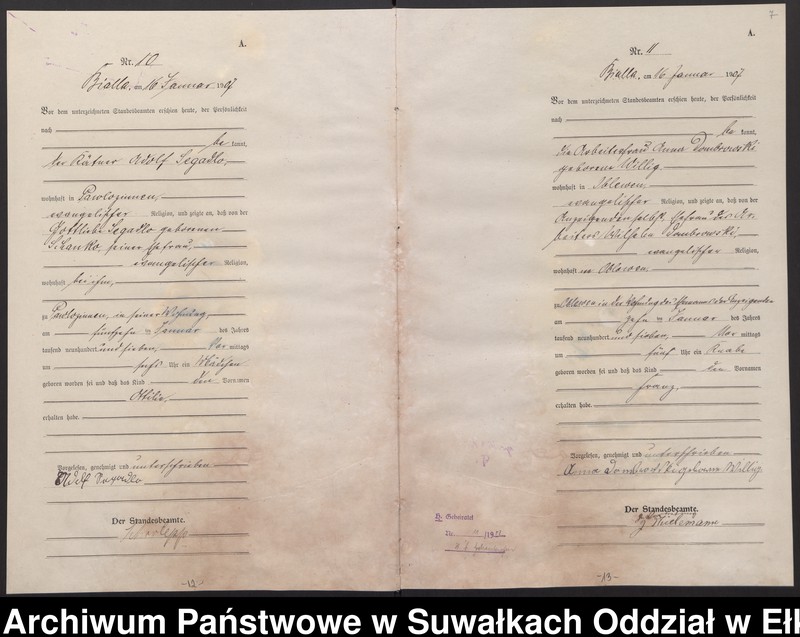 A.
Nr. 10
Bialla, am 16 Januar 1907
Vor dem unterzeichneten Standesbeamten erschien heute, der Persönlichkeit
nach
be kannt,
der Kätner Adolf Segadlo,
wohnhaft in Pawlozinnen,
evangelischer Religion, und zeigte an, daß von der
Gottliebe Segadlo geborenen
seiner Ehefrau,
evangelischer Religion,
wohnhaft bei ihm,
zu Pawlozinnen, in seiner Wohnung,
am fünfzehn ten Januar des Jahres
tausend neunhundert und sieben, Vor mittags
um sechs Uhr ein Mädchen
geboren worden sei und daß das Kind den Vornamen
Ottilie
erhalten habe.
Vorgelesen, genehmigt und unterschrieben
Adolf Segadlo
Der Standesbeamte.
-12-
7
A.
Nr. 11
Bialla, am 16 Januar 1907
Vor dem unterzeichneten Standesbeamten erschien heute, der Persönlichkeit
nach
be kannt,
die Arbeiterfrau Anna Dombrowski
geborene Willig
wohnhaft in Oblewen,
evangelischer Religion, und zeigte an, daß von der
Anzeigenden selbst, Ehefrau des Ar-
beiters Wilhelm Dombrowski,
evangelischer Religion,
wohnhaft in Oblewen,
zu Oblewen in der Wohnung des Ehemannes der Anzeigenden
am zehn ten Januar des Jahres
tausend neunhundert und sieben, Vor mittags
um fünf Uhr ein Knabe
geboren worden sei und daß das Kind den Vornamen
Franz
erhalten habe.
Vorgelesen, genehmigt und unterschrieben
Anna Dombrowski geborene Willig
Der Standesbeamte.
Thielemann
Geheiratet
Nr.
-13-
Archiwum Państwowe w Suwałkach Oddział w Ełk